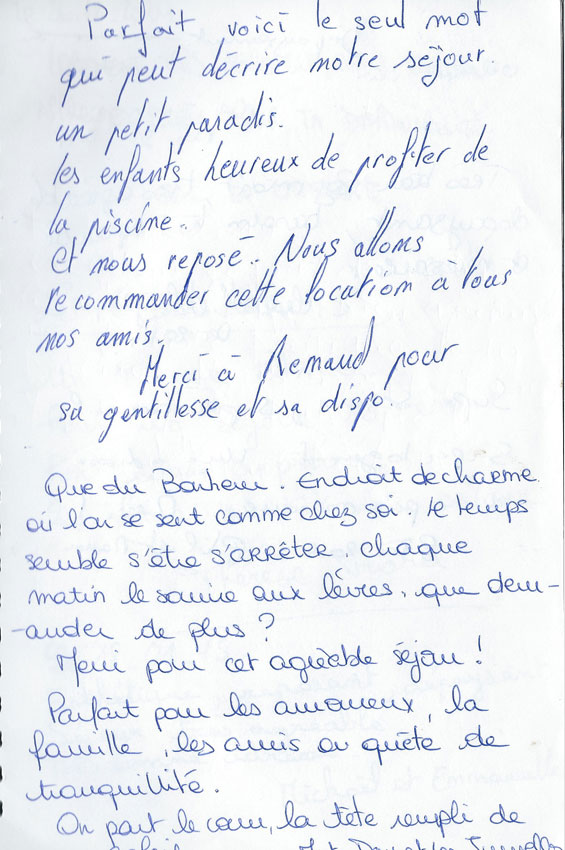 Parfait, voici le seul mot
qui peut décrire notre séjour.
un petit paradis.
les enfants heureux de profiter de
la piscine.
Et nous reposé. Nous allons
recommander cette location à tous
nos amis.
Merci à Renaud pour
sa gentillesse et sa dispo.
Que du Bonheur. Endroit de charme
où l'on se sent comme chez soi. le temps
semble s'être s'arrêter. chaque
matin le sourire aux lèvres, que dem-
-ander de plus ?
Merci pour cet agréable séjour !
Parfait pour les amoureux, la
famille, les amis ou quête de
tranquillité.
On part le cœur, la tête rempli de